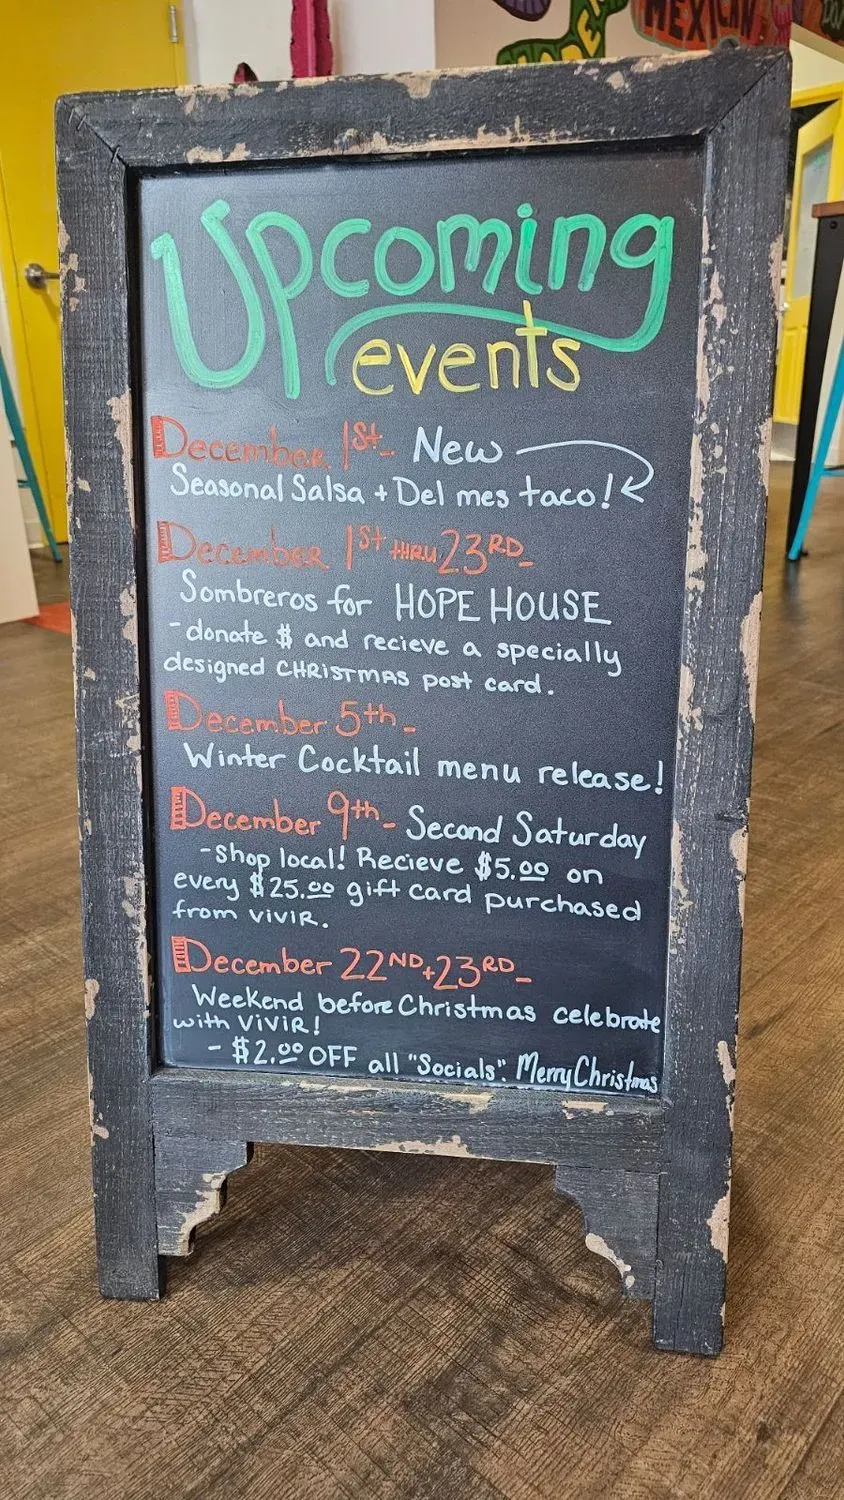 MEXICAN
Upcoming
events
December 1st- New
Seasonal Salsa + Del mes taco!
December 1st THRU 23RD-
Sombreros for HOPE HOUSE
-donate $ and recieve a specially
designed CHRISTMAS post card.
December 5th-
Winter Cocktail menu release!
December 9th- Second Saturday
-shop local! Recieve $5.00 on
every $25.00 gift card purchased
from VIVIR.
December 22ND+23RD-
Weekend before Christmas celebrate
with VIVIR!
- $2.00 OFF all "Socials". Merry Christmas